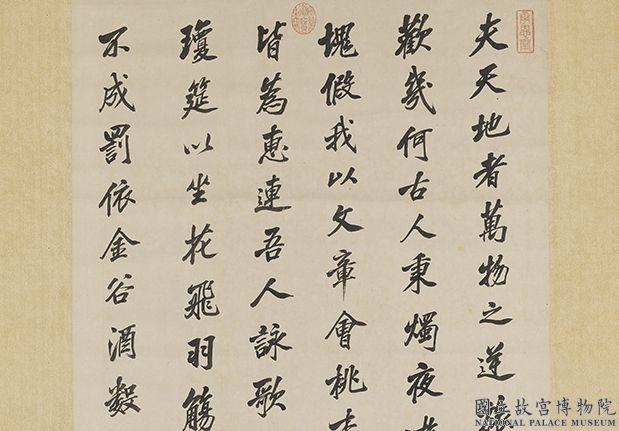 夫天地者萬物之逆旅
歡幾何古人秉燭夜遊
塊假我以文章會桃李
皆為惠連吾人詠歌
瓊筵以坐花飛羽觴
不成罰依金谷酒數
國立故宮博物院
NATIONAL PALACE MUSEUM